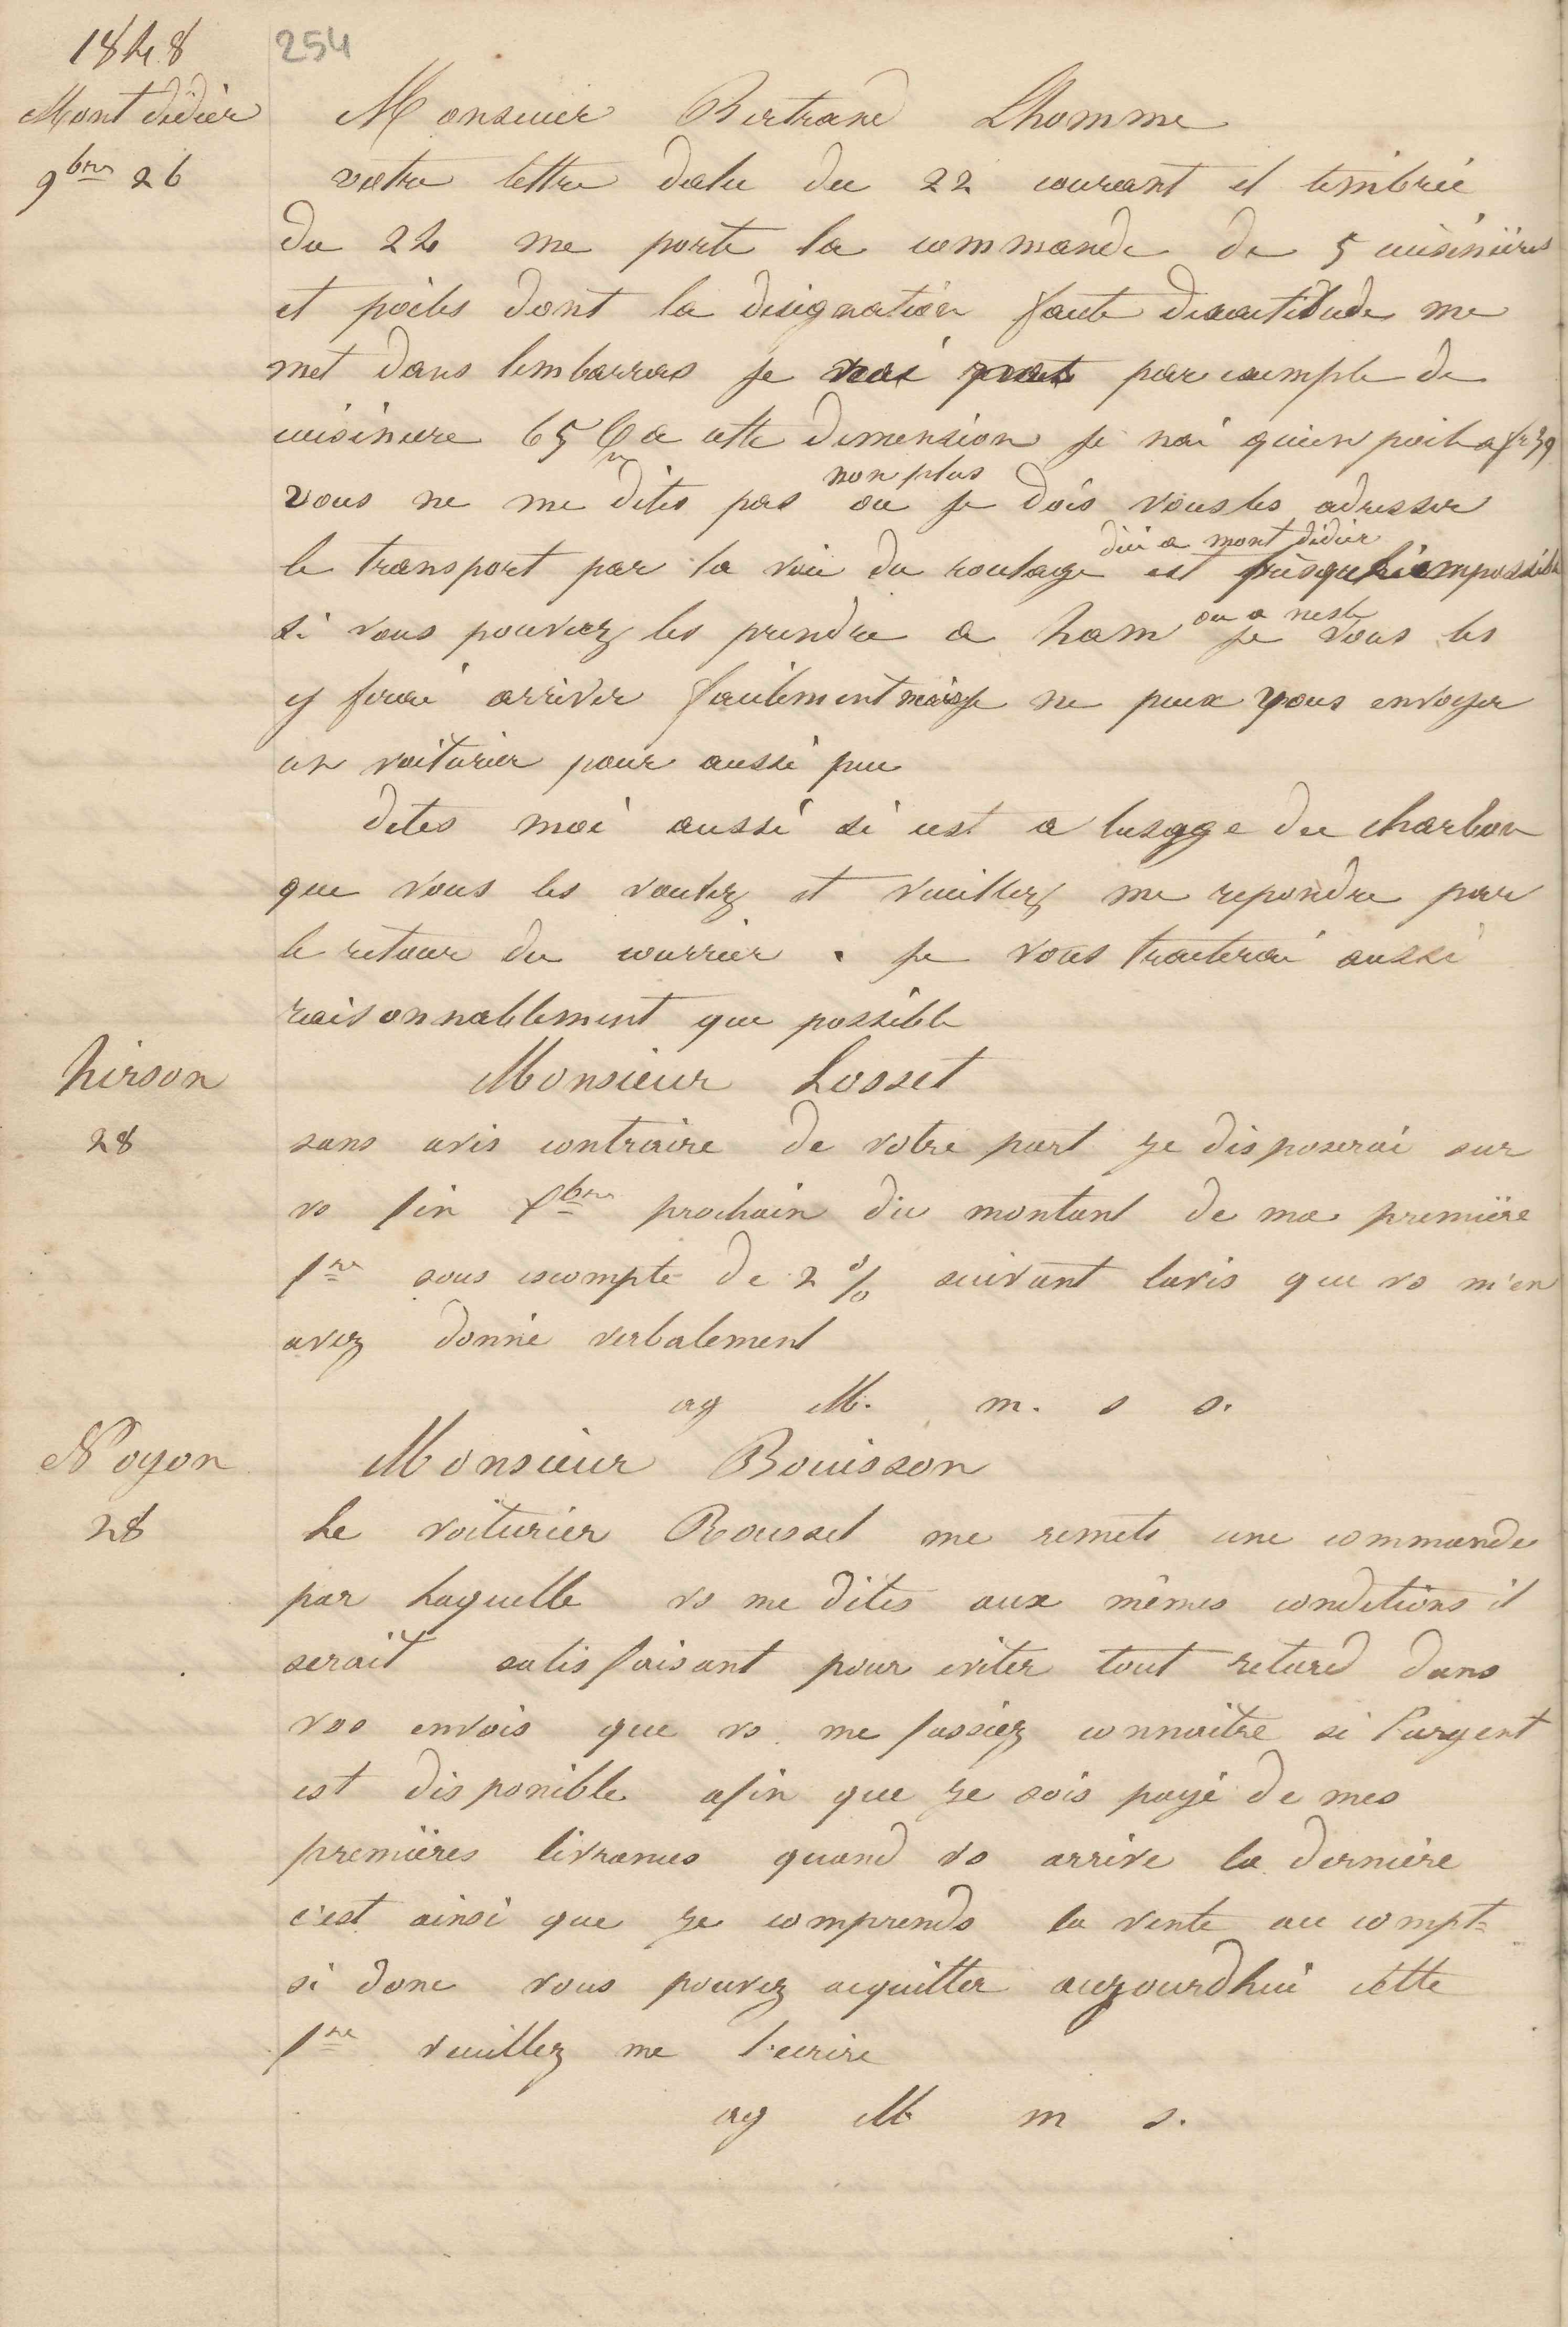 1848
254
Mont didier
9bre 26
Monsieur Bertrand Lhomme
votre lettre datee du 22 courant et timbrée
du 24 me porte la commande de 5 cuisinières
et poeles dont la designation faute dexactitude me
met dans lembarras je nai pas par exemple de
cuisiniere 65 de cette dimension je nai quun poele a fr 39
vous ne me dites pas non plus ou je dois vous les adresser
le transport par la voie du roulage dici a mont didier est presque impossible
si vous pouviez les prendre a ham ou a nesle je vous les
y ferai arriver facilement mais je ne peux vous envoyer
un voiturier pour aussi peu
dites moi aussi si cest a lusage du charbon
que vous les voulez et veuillez me repondre par
le retour du courrier . je vous traiterai aussi
raisonnablement que possible
hirson
28
Monsieur Losset
sans avis contraire de votre part je disposerai sur
vs fin xbre prochain du montant de ma première
fre sous escompte de 2 % suivant lavis que vs m'en
avez donné verbalement
ag M. m. s s.
Noyon
28
Monsieur Bouisson
Le voiturier Roussel me remets une commande
par Laquelle vs me dites aux mêmes conditions il
serait satisfaisant pour eviter tout retard dans
vos envois que vs me fassiez connaitre si l'argent
est disponible afin que je sois payé de mes
premières livrances quand vs arrive la dernière
c'est ainsi que je comprends la vente au compt
si donc vous pouvez acquitter aujourdhui cette
fre veuillez me l'ecrire
ag M m s.